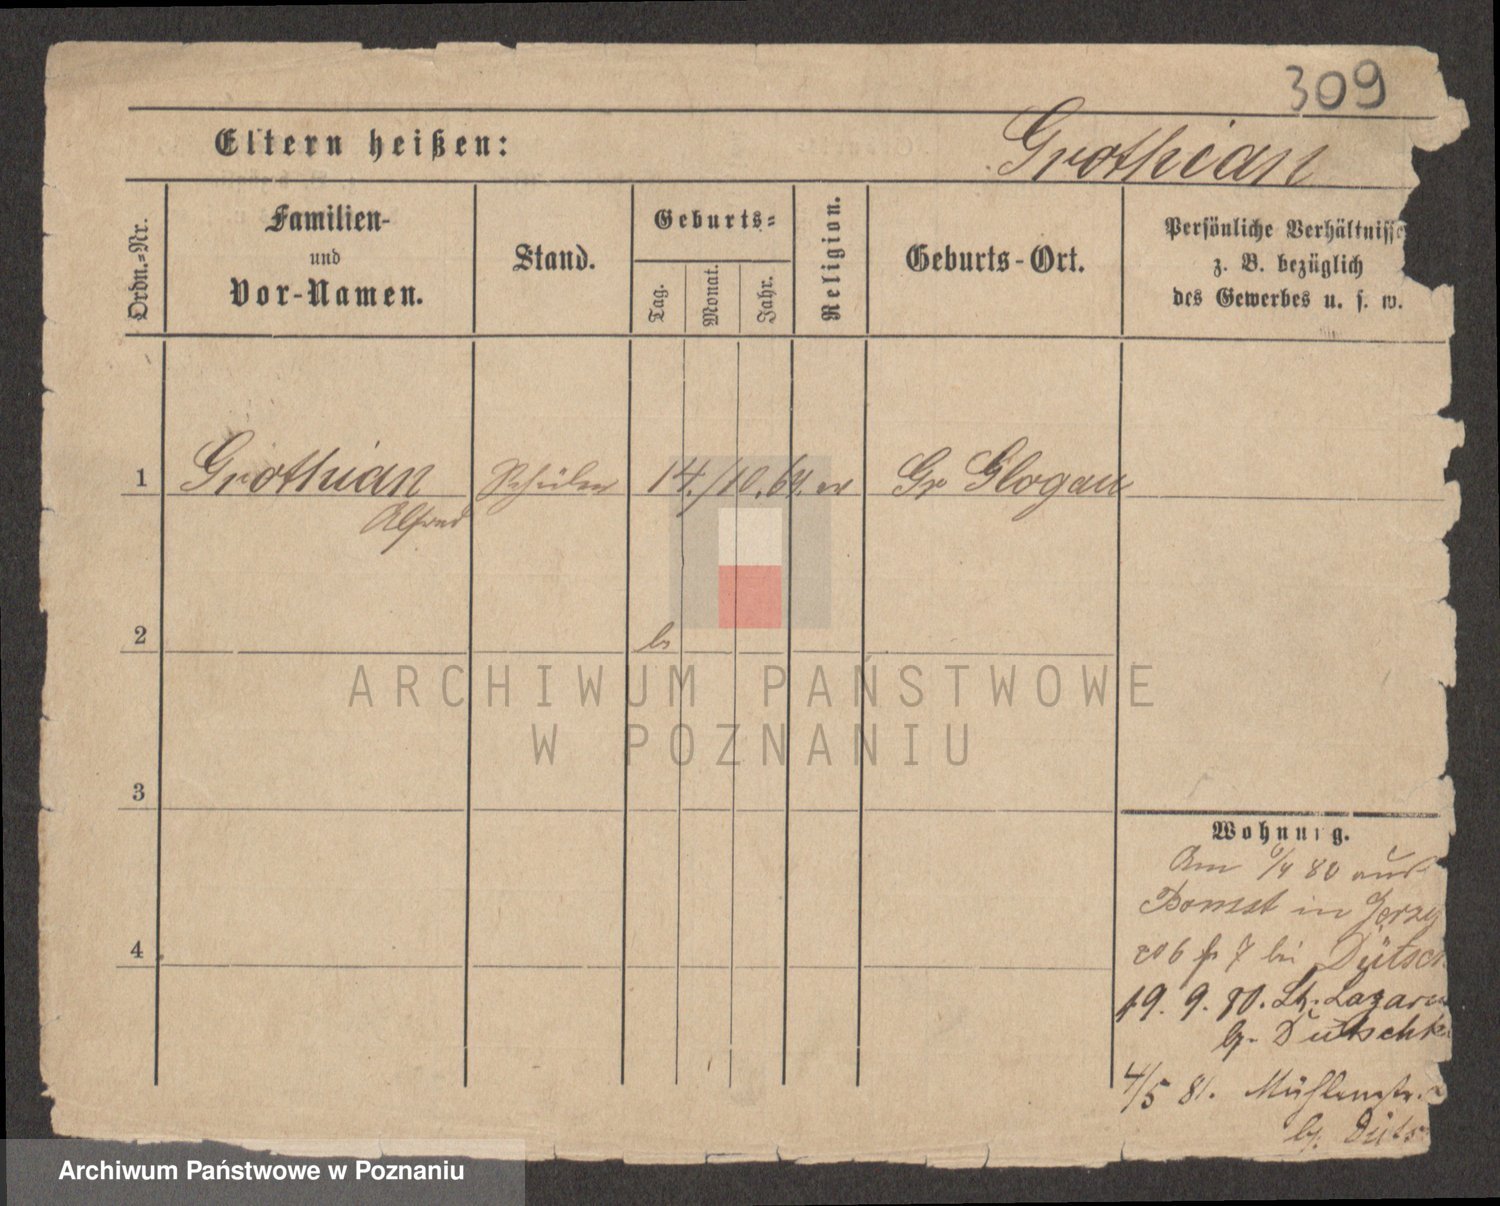 309
Eltern heißen:
Grothian
Ordn.-Nr.
Familien-
und
Vor-Namen.
Stand.
Geburts-
Tag.
Monat.
Jahr.
Religion.
Geburts-Ort.
Persönliche Verhältnisse
z. B. bezüglich
des Gewerbes u. s. w.
1 Grothian Schüler 14./10. 64. ev Gr Glogau
Alfred
2
3
4
Wohnung.
Am 6/4 80 aus
Bomst in Jerzy
7 bei Dütsch
19. 9. 80. St. Lazarus
b. Dütschke
4/5 81. Mühlenstr.
b. Düts
ARCHIWUM PAŃSTWOWE
W POZNANIU
Archiwum Państwowe w Poznaniu